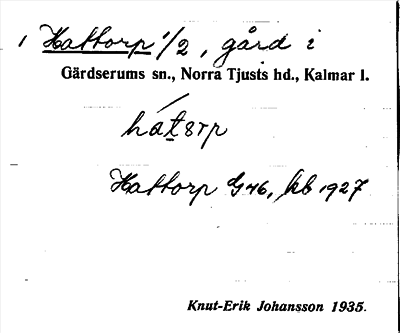 1 Hattorp 1/2, gård i
Gärdserums sn., Norra Tjusts hd., Kalmar l.
Hattorp G46, kb 1927
Knut-Erik Johansson 1935.